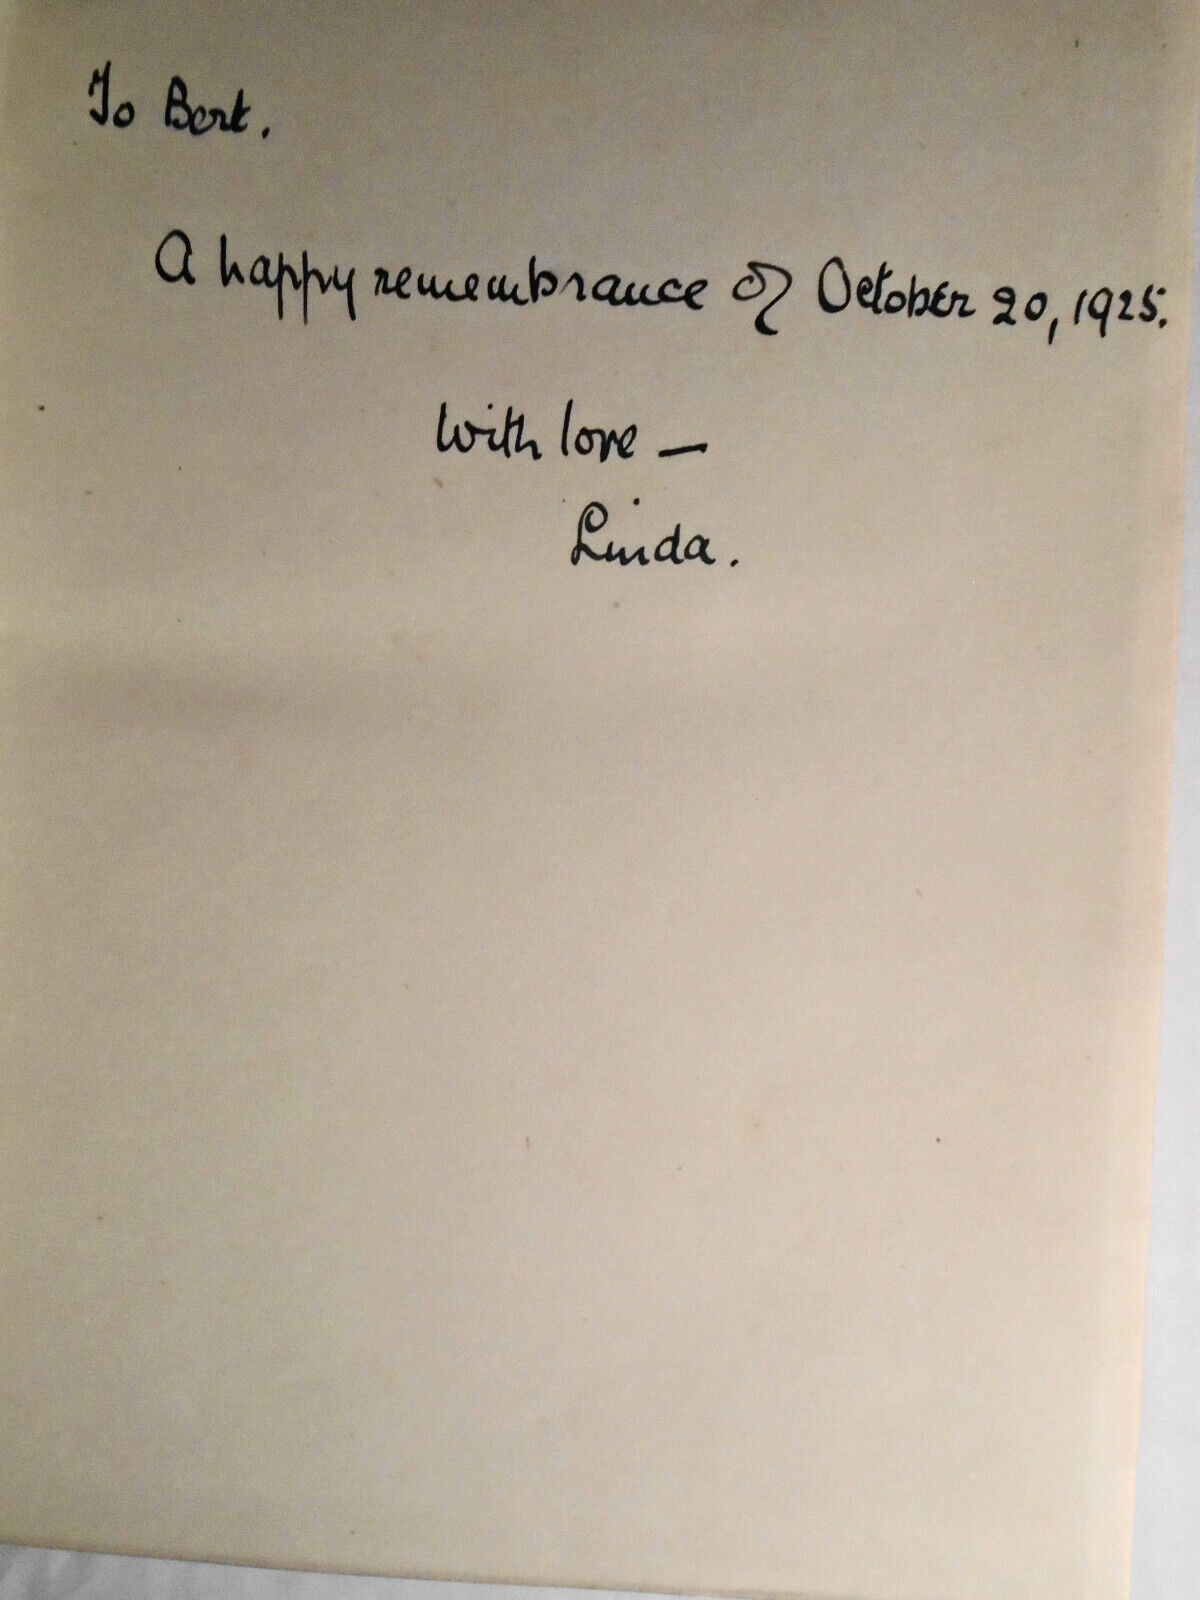 To Bert.
A happy remembrance of October 20, 1925.
With love —
Linda.